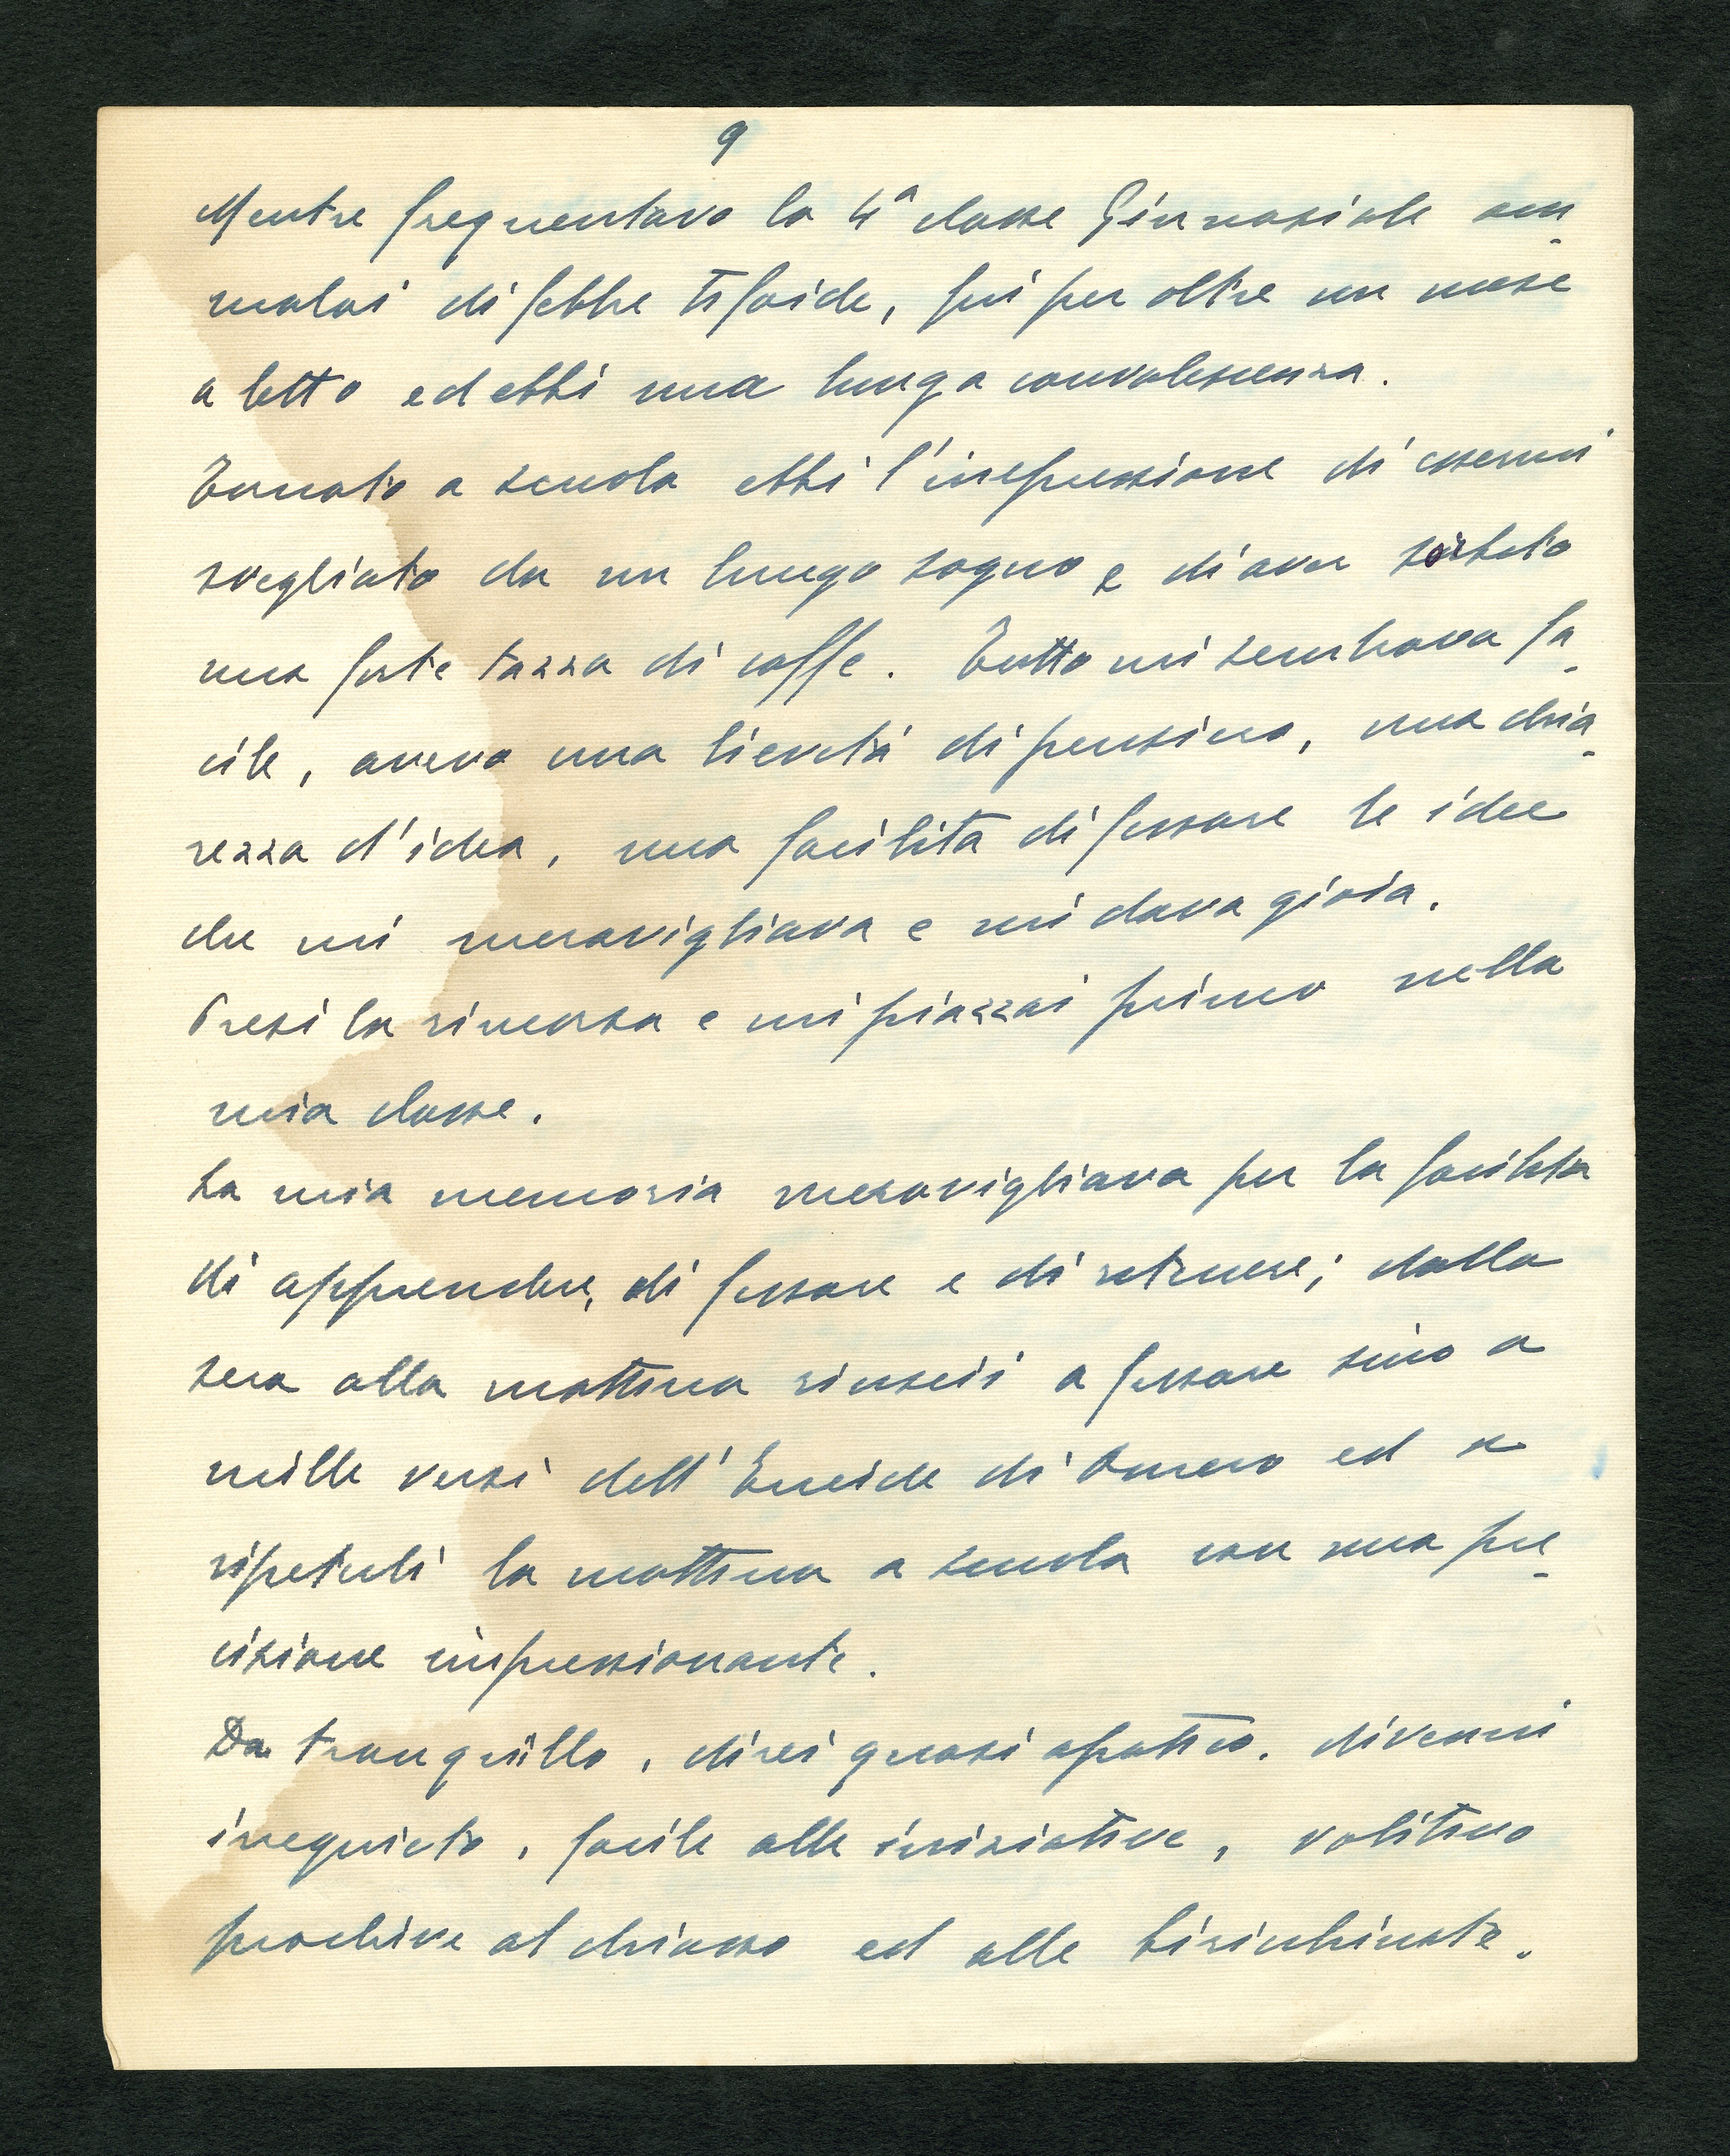 9
Mentre frequentavo la 4ª classe Ginnasiale am-
malai di febbre tifoide, fui per oltre un mese
a letto ed ebbi una lunga convalescenza.
Tornato a scuola ebbi l'impressione di essermi
svegliato da un lungo sogno e di aver sorbito
una forte tazza di caffe. Tutto mi sembrava fa-
cile, avevo una lievità di pensiero, una chia-
rezza d'idea, una facilità di fissare le idee
che mi meravigliava e mi dava gioia.
Presi la rincorsa e mi piazzai primo nella
mia classe.
La mia memoria meravigliava per la facilità
di apprendere, di fissare e di ritenere; dalla
sera alla mattina riuscii a fissare sino a
mille versi dell'Eneide di Omero ed a
ripeterli la mattina a scuola con una pre-
cisione impressionante.
Da tranquillo, direi quasi apatico, divenni
irrequieto, facile alle iniziative, volitivo
proclive al chiasso ed alle birichinate.